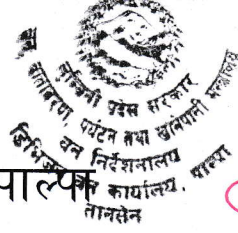 लुम्बिनी प्रदेश सरकार
वातावरण, पर्यटन तथा खानेपानी मन्त्रालय
वन निर्देशनालय
डिभिजन वन कार्यालय, पाल्पा
तानसेन
पाल्पा